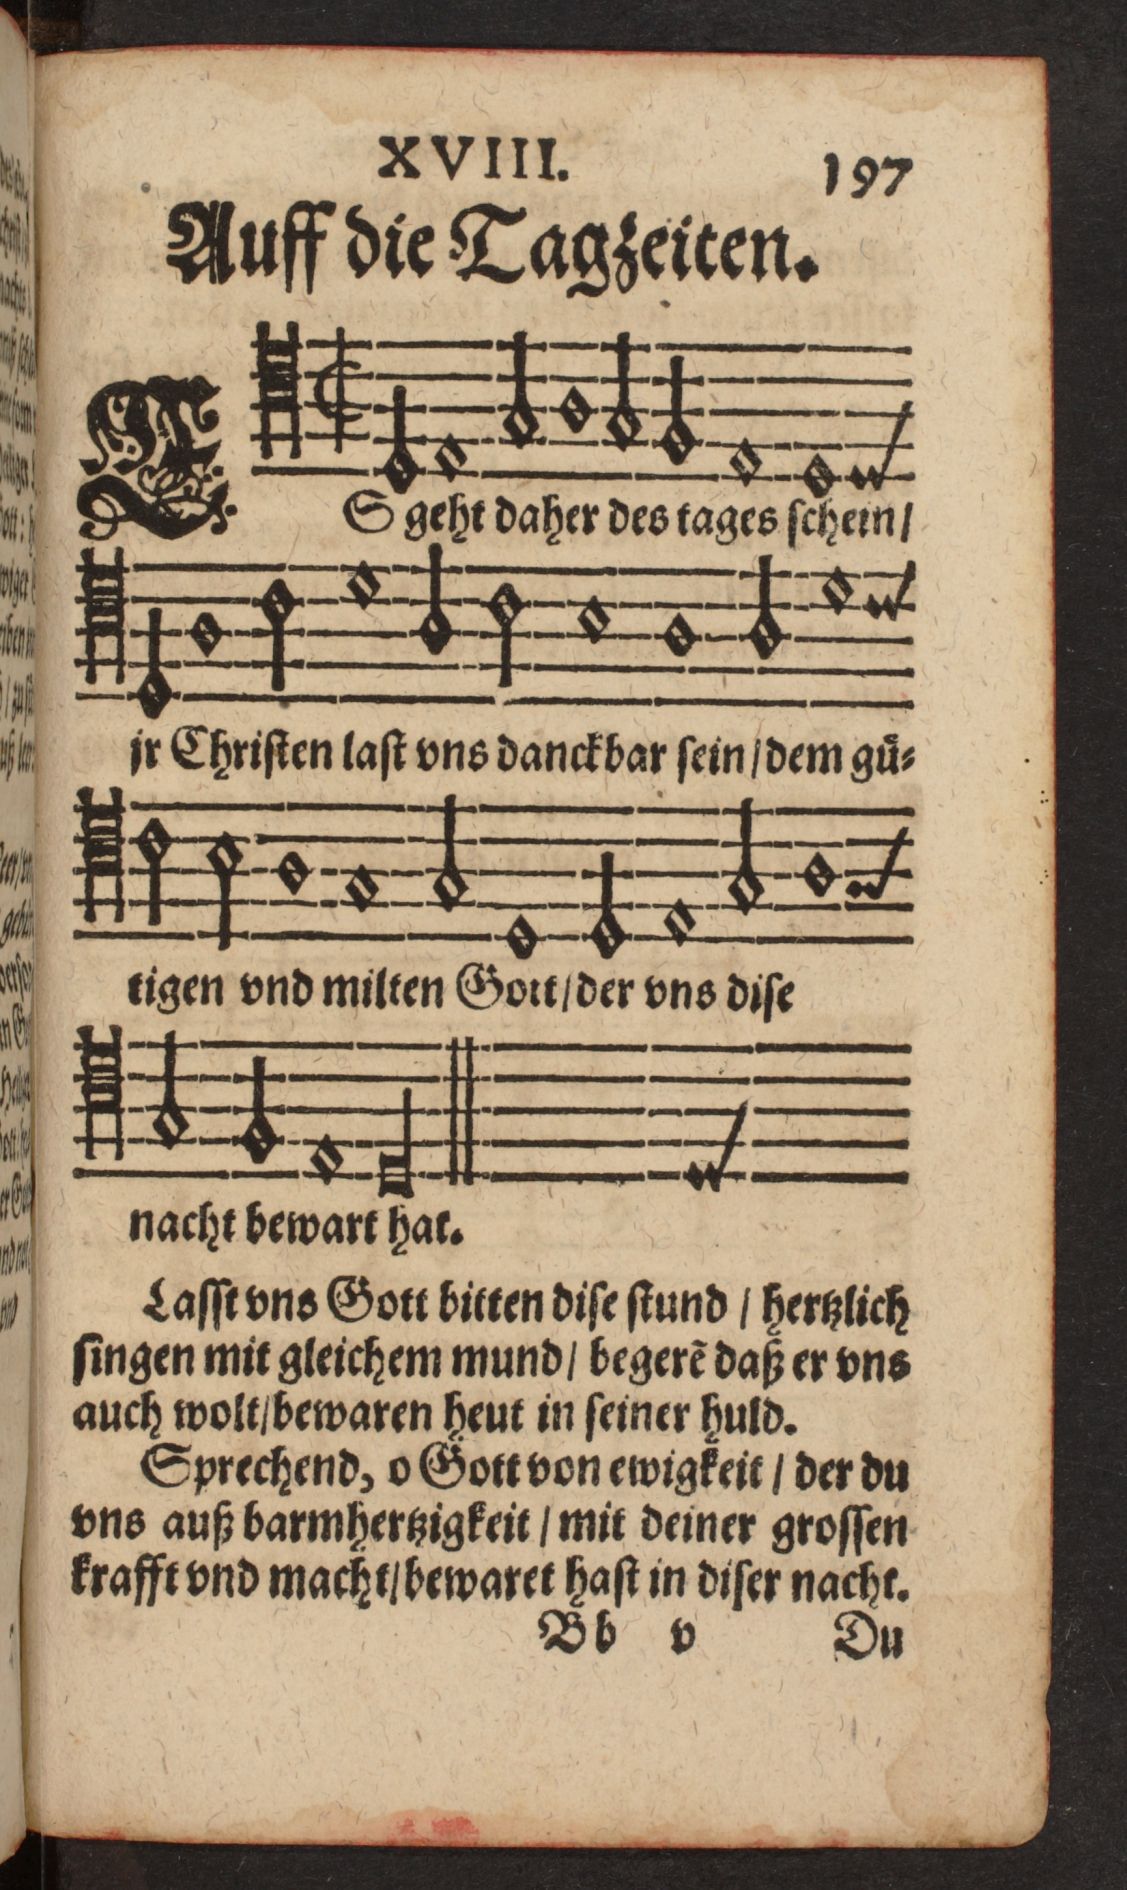 XVIII. 197
Auff die Tagzeiten.
ES geht daher des tages schein/
jr Christen last vns danckbar sein/dem guͤ-
tigen vnd milten Gott/der vns dise
nacht bewart hat.
Lasst vns Gott bitten dise stund / hertzlich
singen mit gleichem mund/ begerẽ daß er vns
auch wolt/bewaren heut in seiner huld.
Sprechend, o Gott von ewigkeit / der du
vns auß barmhertzigkeit / mit deiner grossen
krafft vnd macht/bewaret hast in diser nacht.
Bb v Du